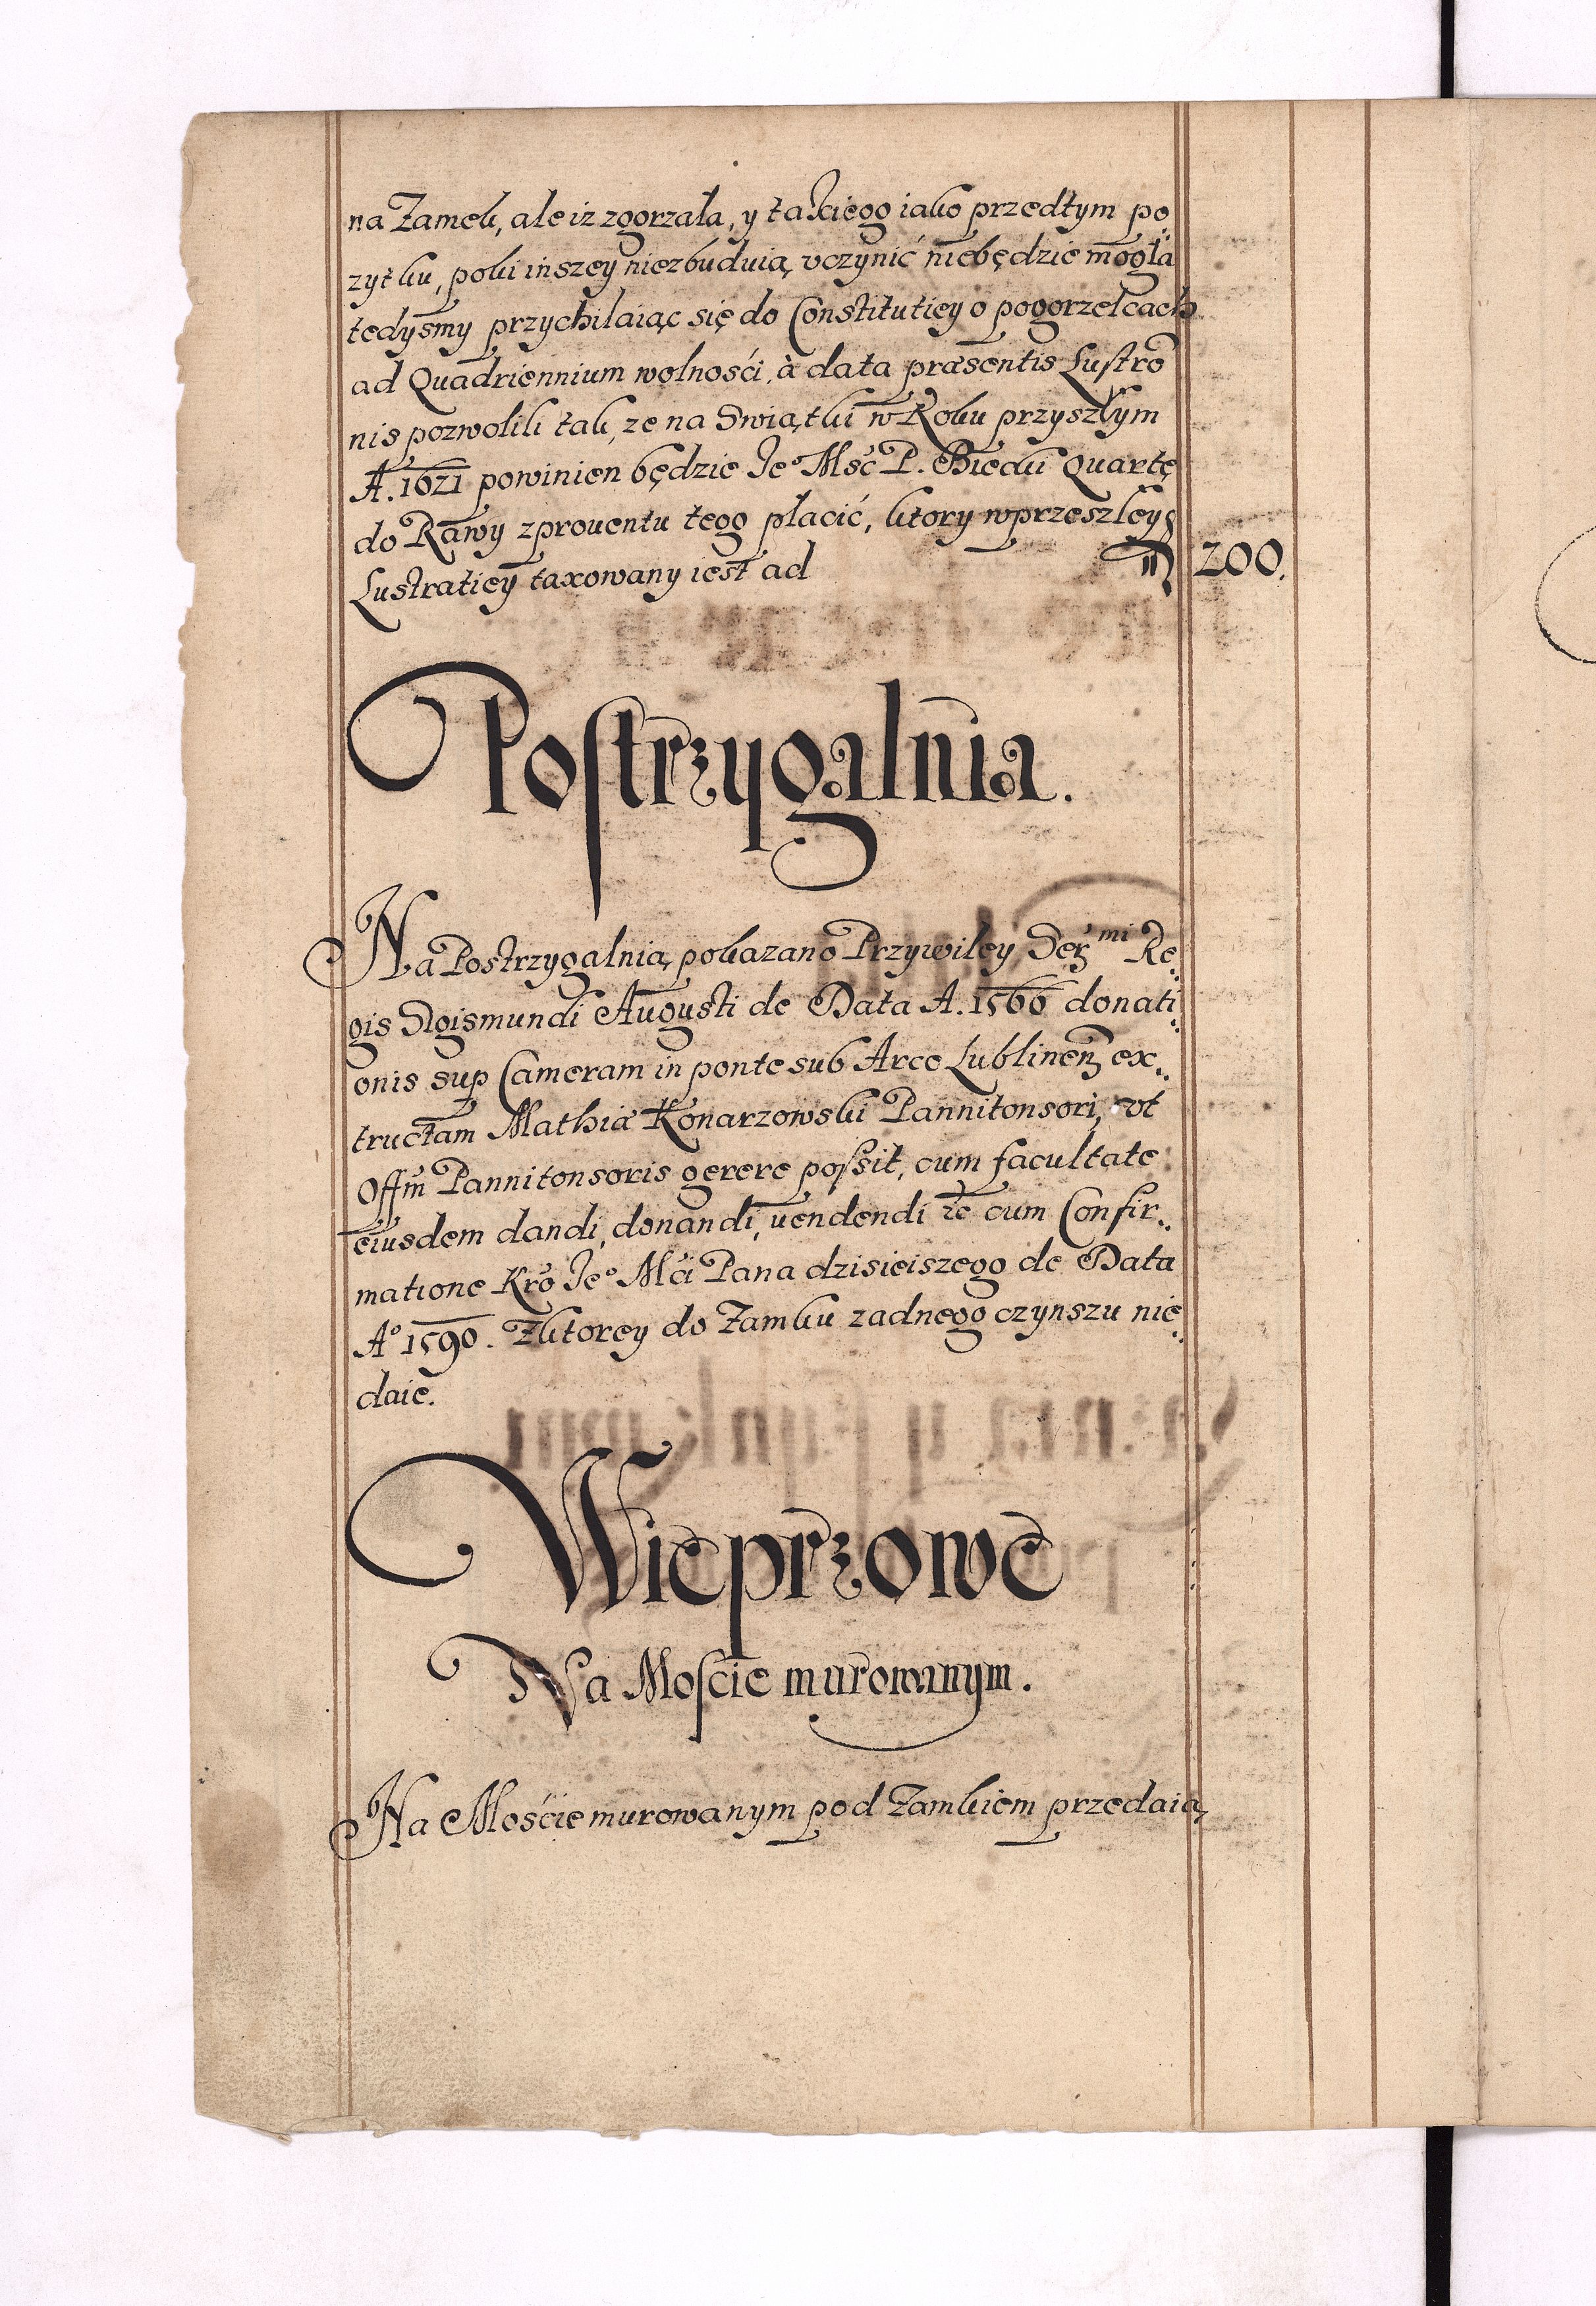 na Zamek, ale iz zgorzała, y takiego iako przedtym po„
zytku, poki inszey niezbuduią, vczynić niebędzie mogła
tedysmy przychilaiąc się do Constitutiey o pogorzelcach
ad Quadriennium wolnosći, à data præsentis Lustro
nis pozwolili tak, ze na Swiątki w Roku przyszłym
A. 1621 powinien będzie Je° Msć P. Biecki Quartę
do Rawy zprouentu tego płacić, ktory wprzeszłey
Lustratiey taxowany iest ad 200.
Postrzygalnia.
Na Postrzygalnią pokazano Przywiley Ser mi Re„
gis Sigismundi Augusti de Data A. 1566 donati„
onis sup Cameram in ponte sub Arce Lublinen ex„
tructam Mathiæ Konarzowski Pannitonsori, vt
Offm Pannitonsoris gerere possit, cum facultate
eiusdem dandi, donandi, uendendi etc cum Confir„
matione Kro Je° Mći Pana dzisieiszego de Data
A° 1590. Zktorey do Zamku zadnego czynszu nie„
daie.
Wieprzowe
Na Moscie murowanym.
Na Mosćie murowanym pod Zamkiem przedaią